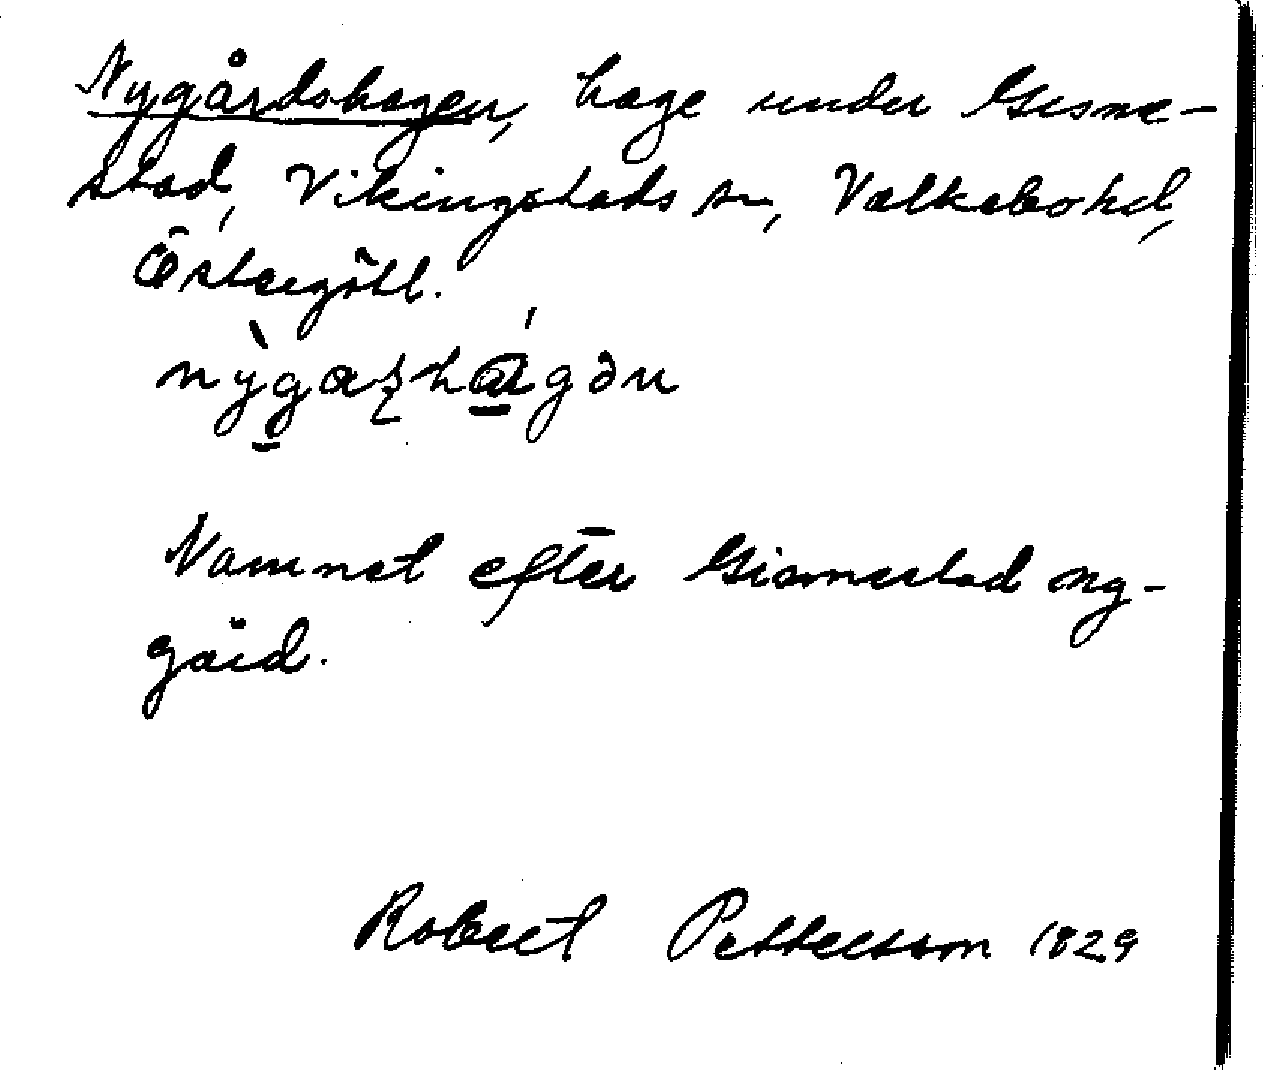 Nygårdshagen, hage under Gisme-
stad, Vikingstads sn, Valkebo hd,
Östergötl.
nỳgaʂhágən
Namnet efter Gismestad ny-
gård.
Robert Pettersson 1829